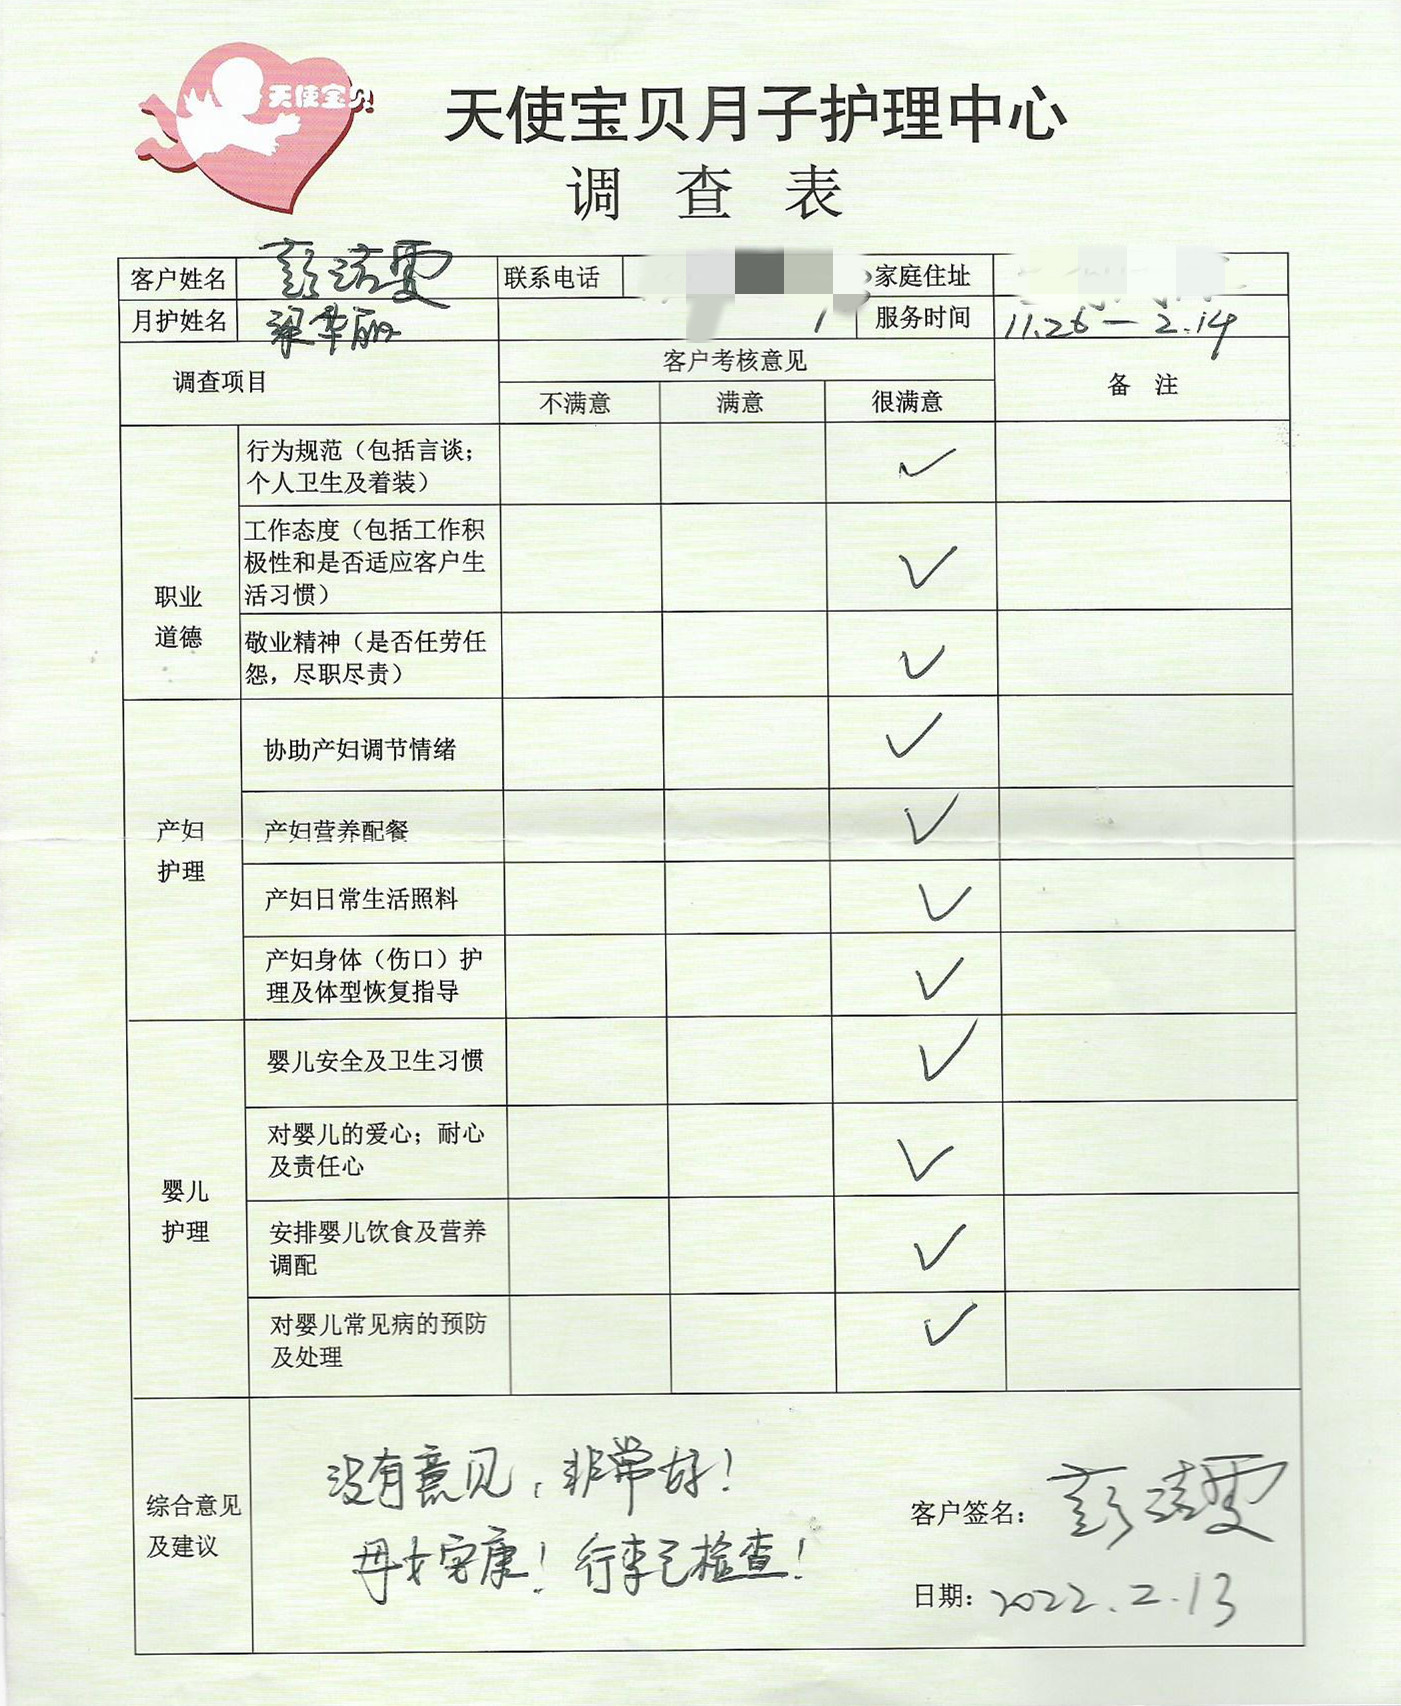 天使宝贝
天使宝贝月子护理中心
调查表
客户姓名 彭洁雯 联系电话 家庭住址
月护姓名 梁华丽 服务时间 11.26—2.14
调查项目 客户考核意见 备注
不满意 满意 很满意
职业
道德
行为规范（包括言谈；
个人卫生及着装） ✓
工作态度（包括工作积
极性和是否适应客户生
活习惯） ✓
敬业精神（是否任劳任
怨，尽职尽责） ✓
产妇
护理
协助产妇调节情绪 ✓
产妇营养配餐 ✓
产妇日常生活照料 ✓
产妇身体（伤口）护
理及体型恢复指导 ✓
婴儿
护理
婴儿安全及卫生习惯 ✓
对婴儿的爱心；耐心
及责任心 ✓
安排婴儿饮食及营养
调配 ✓
对婴儿常见病的预防
及处理 ✓
综合意见
及建议
没有意见，非常好！
母女安康！行李已检查！
客户签名：彭洁雯
日期：2022.2.13